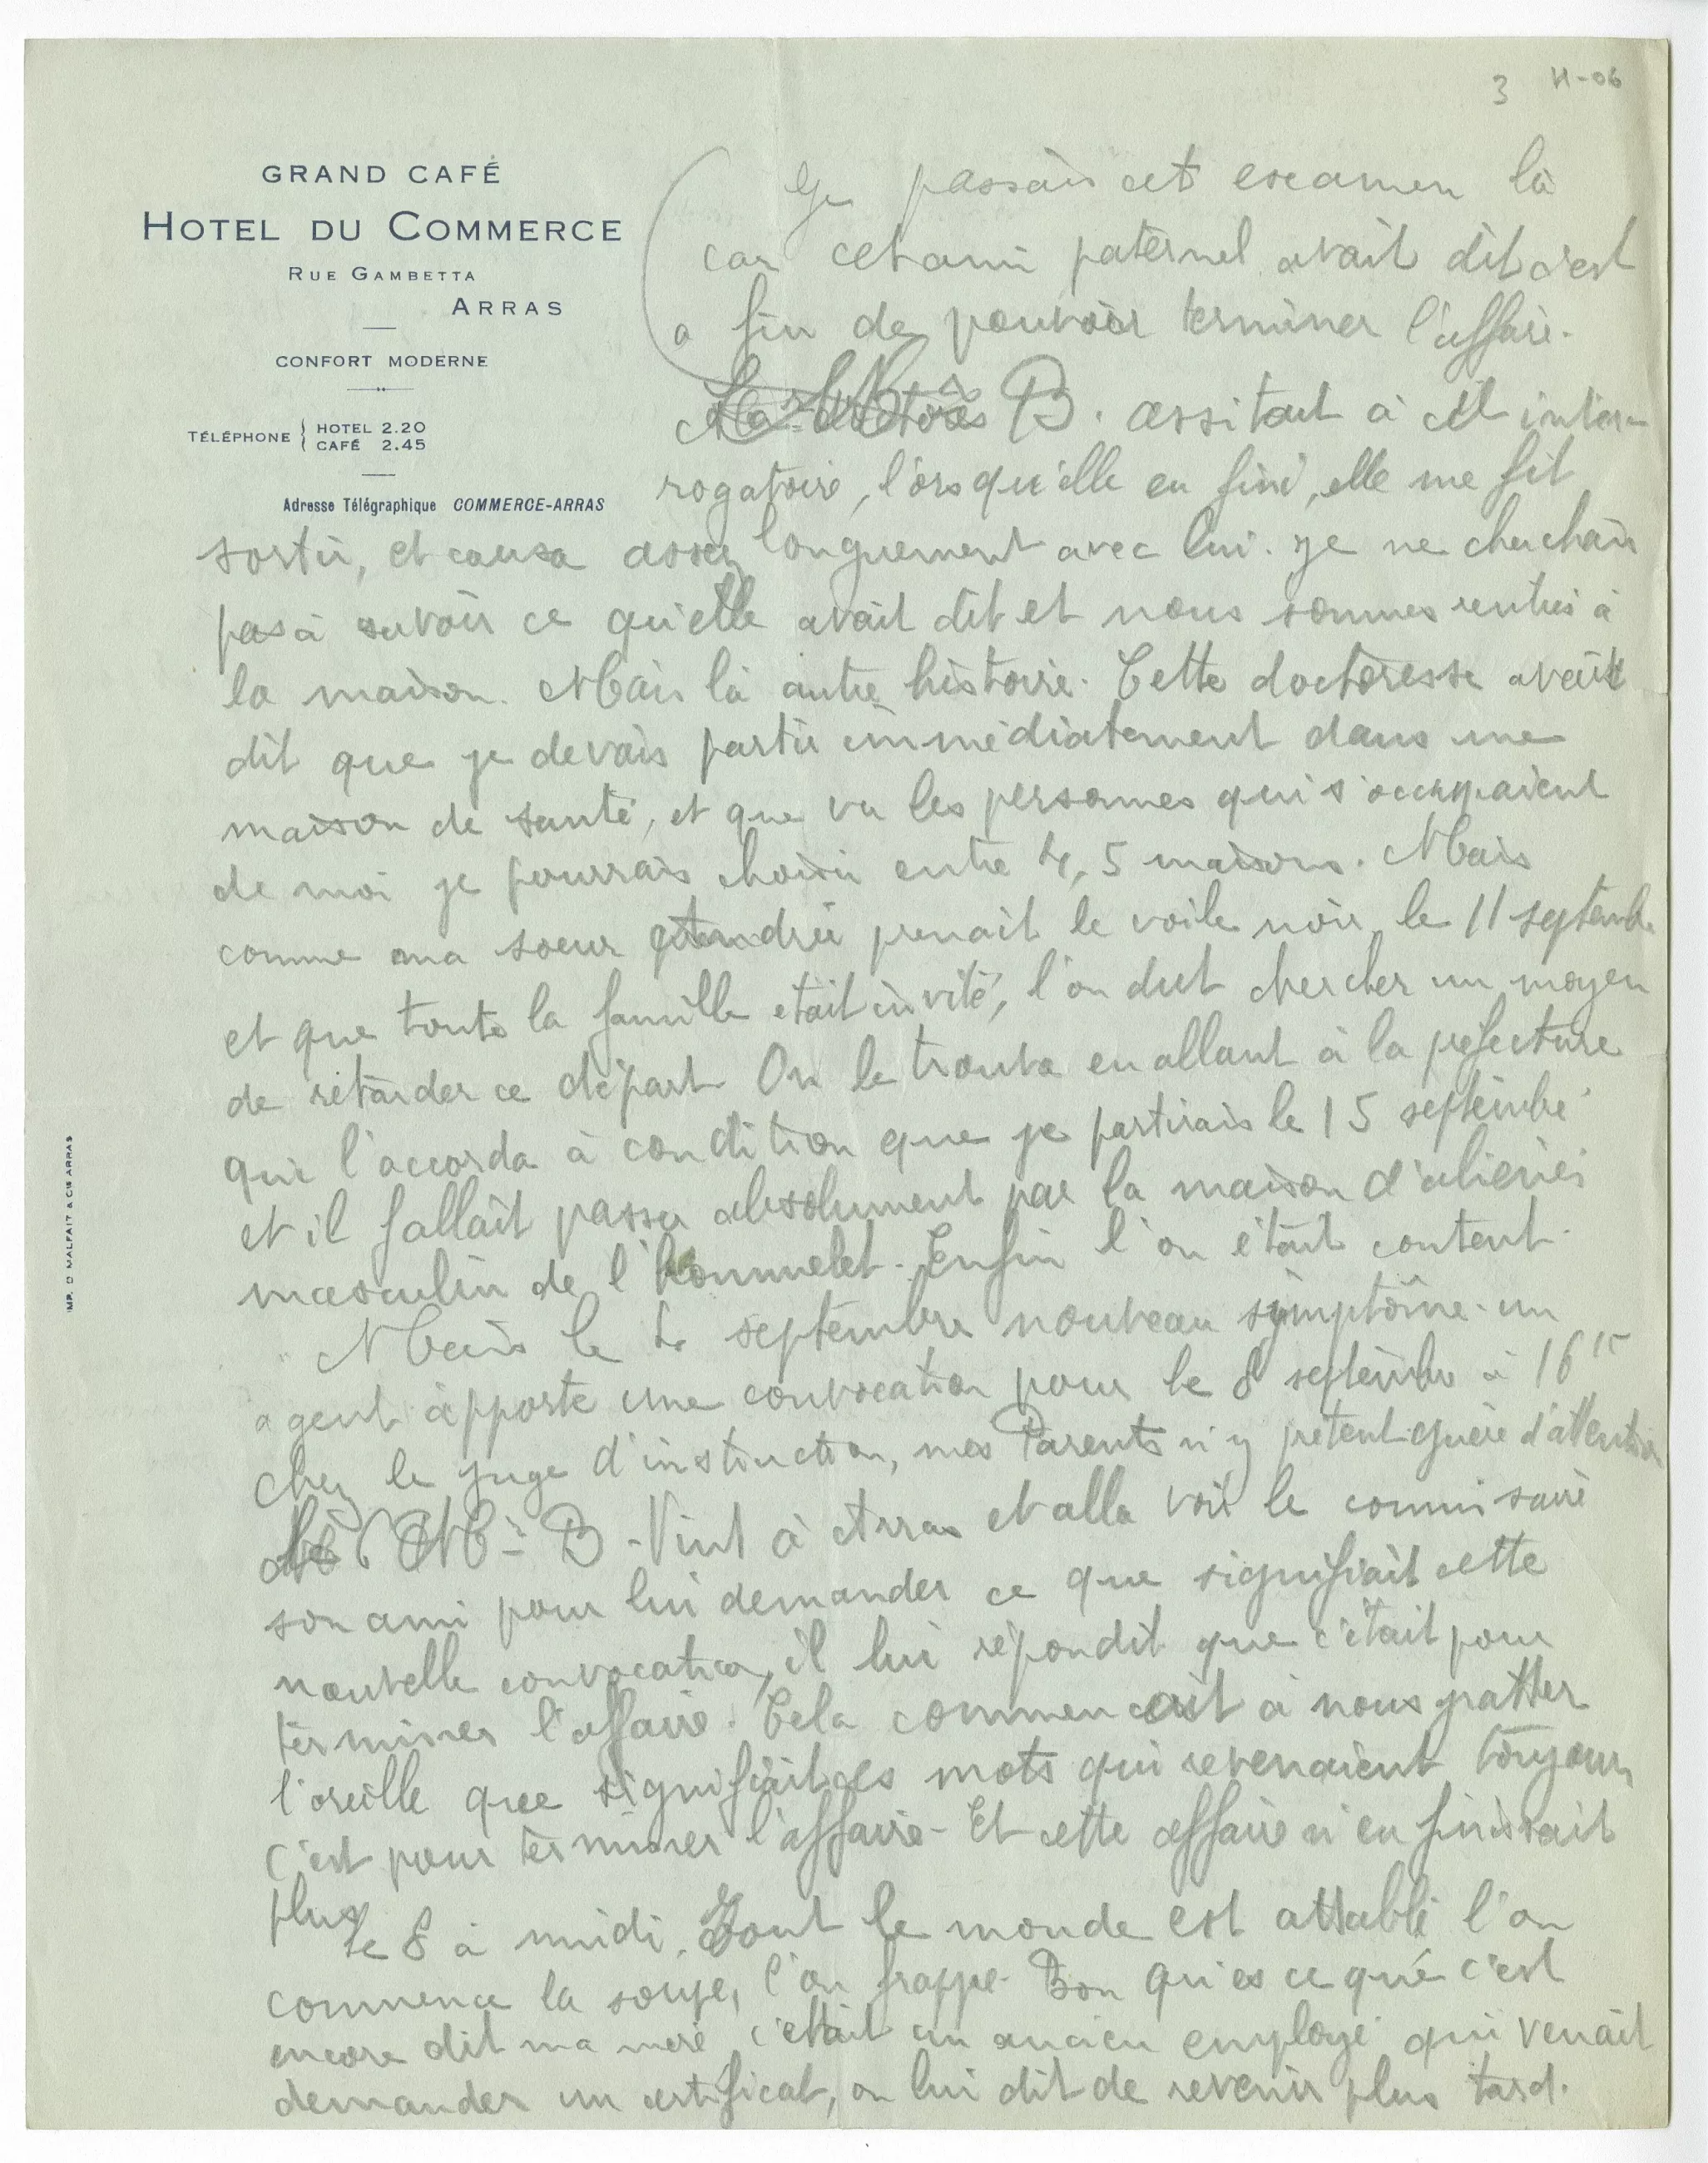 3 H-06
GRAND CAFÉ
HOTEL DU COMMERCE
RUE GAMBETTA
ARRAS
CONFORT MODERNE
TÉLÉPHONE { HOTEL 2.20
CAFÉ 2.45
Adresse Télégraphique COMMERCE-ARRAS
IMP. D MALFAIT & CIE ARRAS
Je passais cet examen là
car cet ami paternel avait dit c'est
a fin de pouvoir terminer l'affaire.
B. assitait à cet inter-
rogatoire, l'orsqu'elle eu fini, elle me fit
sortir, et causa assez longuement avec lui. je ne cherchais
pas à savoir ce qu'elle avait dit et nous sommes rentrés à
la maison. Mais là autre histoire. Cette doctoresse avait
dit que je devais partir immédiatement dans une
maison de santé, et que vu les personnes qui s'occupaient
de moi je pourrais choisir entre 4, 5 maisons. Mais
comme ma soeur prenait le voile noir le 11 septembre
et que toute la famille était invité, l'on dut chercher un moyen
de retarder ce départ. On le trouva en allant à la prefecture
qui l'accorda à condition que je partirais le 15 septembre
et il fallait passer absolument par la maison d'aliénés
masculin de l'hommelet. Enfin l'on était content.
Mais le 4 septembre nouveau symptôme. un
agent apporte une convocation pour le 8 septembre à 16 15
chez le juge d'instruction, mes Parents n'y prêtent guère d'attention
Mr B. Vint à Arras et alla voir le commisaire
son ami pour lui demander ce que signifiait cette
nouvelle convocation, il lui répondit que c'était pour
terminer l'affaire. Cela commencait à nous gratter
l'oreille que signifiait ces mots qui revenaient toujours
c'est pour terminer l'affaire - Et cette affaire n'en finissait
plus
le 8 à midi. Tout le monde est attablé l'on
commence la soupe, l'on frappe. Bon qu'es ce que c'est
encore dit ma mère c'était un ancien employé qui venait
demander un certificat, on lui dit de revenir plus tard.